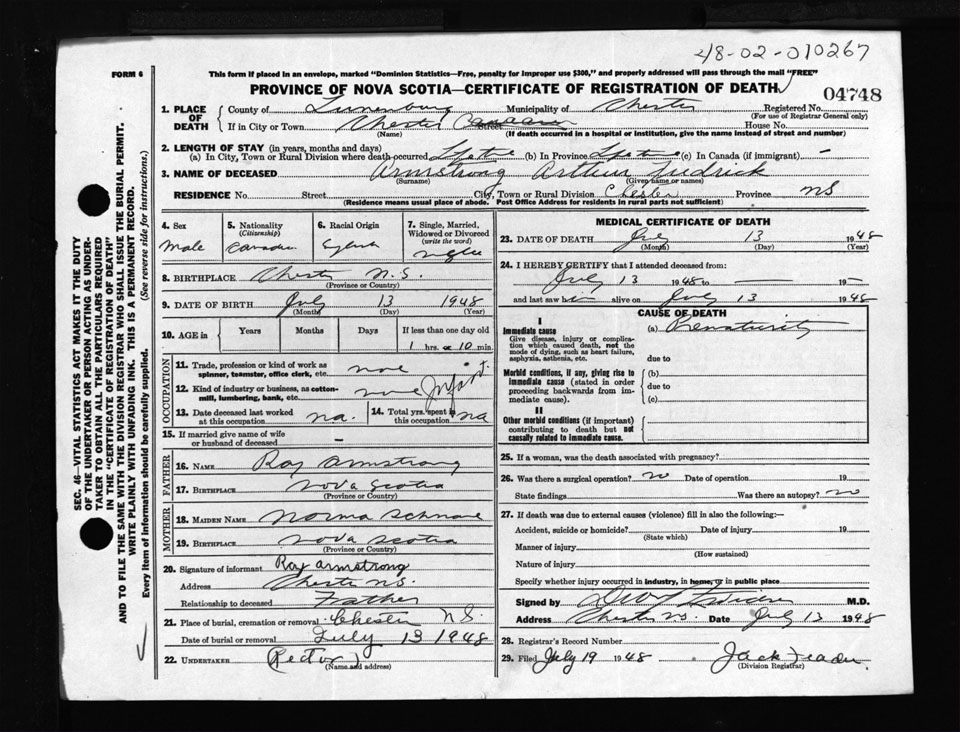 48-02-010267
FORM 6
This form if placed in an envelope, marked "Dominion Statistics—Free, penalty for improper use $300," and properly addressed will pass through the mail "FREE"
PROVINCE OF NOVA SCOTIA—CERTIFICATE OF REGISTRATION OF DEATH
04748
1. PLACE OF DEATH
County of Lunenburg Municipality of Chester Registered No.
(For use of Registrar General only)
If in City or Town Chester Street House No.
(Name) (If death occurred in a hospital or institution, give name instead of street and number)
2. LENGTH OF STAY (in years, months and days)
(a) In City, Town or Rural Division where death occurred (b) In Province (c) In Canada (if immigrant) –
3. NAME OF DECEASED Armstrong Arthur Fedrick
(Surname) (Given name or names)
RESIDENCE No. Street City, Town or Rural Division Chester Province NS
(Residence means usual place of abode. Post Office Address for residents in rural parts not sufficient)
4. Sex
Male
5. Nationality
(Citizenship)
6. Racial Origin
7. Single, Married, Widowed or Divorced
(write the word)
8. BIRTHPLACE Chester N.S.
(Province or Country)
9. DATE OF BIRTH July 13 1948
(Month) (Day) (Year)
10. AGE in Years Months Days If less than one day old
1 hrs. 10 min.
OCCUPATION
11. Trade, profession or kind of work as spinner, teamster, office clerk, etc.
12. Kind of industry or business, as cotton-mill, lumbering, bank, etc.
13. Date deceased last worked at this occupation na.
14. Total yrs. spent in this occupation na
15. If married give name of wife or husband of deceased –
FATHER
16. NAME Roy Armstrong
17. BIRTHPLACE Nova Scotia
(Province or Country)
MOTHER
18. MAIDEN NAME Norma
19. BIRTHPLACE Nova Scotia
(Province or Country)
20. Signature of informant Roy Armstrong
Address Chester N.S.
Relationship to deceased Father
21. Place of burial, cremation or removal Chester N.S.
Date of burial or removal July 13 1948
22. UNDERTAKER (Rector)
(Name and address)
MEDICAL CERTIFICATE OF DEATH
23. DATE OF DEATH July 13 1948
(Month) (Day) (Year)
24. I HEREBY CERTIFY that I attended deceased from:
July 13 1948 to — 19 –
and last saw h alive on July 13 1948
CAUSE OF DEATH
I
Immediate cause
Give disease, injury or complication which caused death, not the mode of dying, such as heart failure, asphyxia, asthenia, etc.
(a)
due to
Morbid conditions, if any, giving rise to immediate cause (stated in order proceeding backwards from immediate cause).
(b)
due to
(c)
II
Other morbid conditions (if important) contributing to death but not causally related to immediate cause.
25. If a woman, was the death associated with pregnancy?
26. Was there a surgical operation? no Date of operation 19
State findings Was there an autopsy? no
27. If death was due to external causes (violence) fill in also the following:—
Accident, suicide or homicide? Date of injury 19
(State which)
Manner of injury
(How sustained)
Nature of injury
Specify whether injury occurred in industry, in home, or in public place
Signed by M.D.
Address Chester NS Date July 13 1948
28. Registrar's Record Number
29. Filed July 19 1948 Jack
(Division Registrar)
SEC. 46—VITAL STATISTICS ACT MAKES IT THE DUTY
OF THE UNDERTAKER OR PERSON ACTING AS UNDER-
TAKER TO OBTAIN ALL THE PARTICULARS REQUIRED
IN THE "CERTIFICATE OF REGISTRATION OF DEATH"
AND TO FILE THE SAME WITH THE DIVISION REGISTRAR WHO SHALL ISSUE THE BURIAL PERMIT.
WRITE PLAINLY WITH UNFADING INK. THIS IS A PERMANENT RECORD.
Every item of information should be carefully supplied. (See reverse side for instructions.)